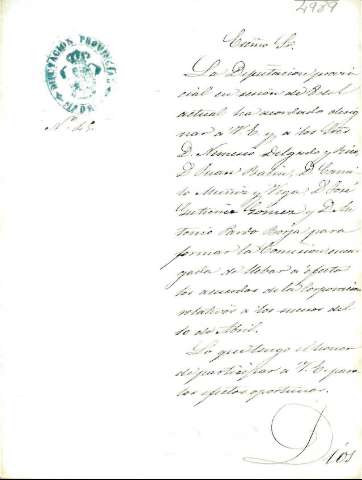 4989
Excmo Sr.
DIPUTACION PROVINCIAL
Nº
La Diputacion provin
cial en sesion de 3 del
actual ha acordado desig
nar a V.E y a los Sres
D. Nemesio Delgado y Rico,
D. Juan D. Cami
lo Muñiz y Vega, D. José
Gutierrez Gomez y D. An
tonio Pardo Borja para
formar la Comision encar
gada de llebar a efecto
los acuerdos de la Corporacion
relativos a los sucesos del
10 de Abril.
Lo que tengo el honor
de participar a V.E. para
los efectos oportunos.
Dios